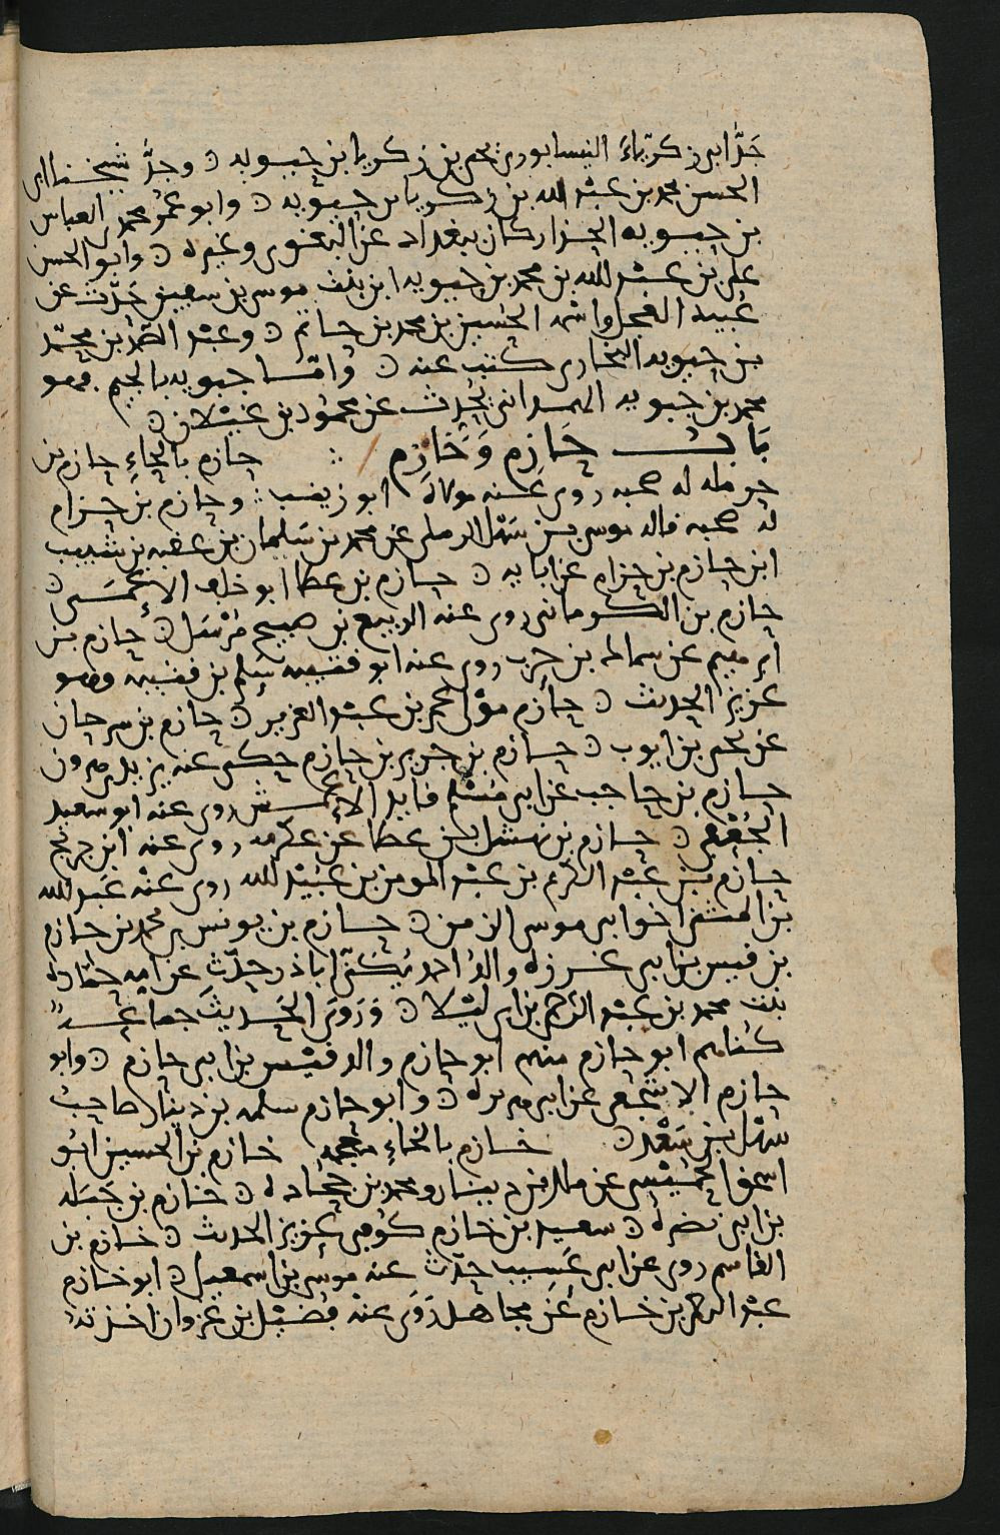 جَدُّ ابي زكرياءَ النيسابوري يحيى بن زكريا بن حيويه ۞ وجدُّ شيخنا ابي
الحسن محمد بن عبد الله بن زكريا بن حيويه ۞ وابو عمر محمد بن العباس
بن حيويه الخزاز كان ببغداد عن البغوي وغيره ۞ وابو الحسن
علي بن عبد الله بن محمد بن حيويه ابن بنت موسى بن سعيد حَدَّث عن
عبيد العجل واسمه الحسين بن محمد بن حاتم ۞ وعبد الصمد بن محمد
بن حيويه البخاري كتب عنه ۞ وامّا جبويه بالجيم فهو
محمد بن جبويه الهمداني يُحدث عن محمود بن غيلان ۞
بَاب حَازِم وَخَازِم ∴ حازم بالحاءِ حازم بن
حرمله له صحبه روى عنه مولاه ابو زينب ∴ وحازم بن حزام
له صحبه قاله موسى بن سَهل الرملي عن محمد بن سليمان بن عقبه بن شبيب
ابن حازم بن حزام عن ابايه ۞ حازم بن عطا ابو خلف الاعمى ۞
حازم بن الكرماني روى عنه الربيع بن صبيح مُرْسَل ۞ حازم بن
ابرهيم عن سماك بن حرب روى عنه ابو قتيبه سلم بن قتيبه وهو
عزيز الحديث ۞ حازم مولى عمر بن عبد العزيز ۞ حازم بن سرحان
عن يحيى بن ايوب ۞ حازم بن جرير بن حازم حكى عنه يزيد بن هرون
حازم بن حاجب عن ابي مسلم قايد الاعمش روى عنه ابو سعيد
الجعفي ۞ حازم بن نهشل عن عطا عن عكرمه روى عنه ابن جريج
حازم بن عبد الكريم بن عبد المومن بن عبيد الله روى عنه عبد الله
بن المثنى اخو ابي موسى الزمن ۞ حازم بن يونس بن محمد بن حازم
بن قيس بن ابي غرزه والد احمد يُكَنّى اباذر حدّث عن امه حمّاده
بنت محمد بن عبد الرحمن بن ابي ليلى ۞ وَرَوَى الحديث جماعَه
كناهم ابو حازم منهم ابو حازم والد قيس بن ابي حازم ۞ وابو
حازم الاشجعي عن ابي هريره ۞ وابو حازم سلمه بن دينار صاحب
سهل بن سَعْد ۞ خازم بالخاءِ معجمه خازم بن الحسين ابو
اسحق الحميسي عن مالك بن دينار ومحمد بن جحاده ۞ خازم بن جَبَله
بن ابي نضره ۞ سعيد بن خازم كوفي عزيز الحديث ۞ خازم بن
القاسم روى عن ابي عسيب حدّث عنه موسى بن اسمعيل ۞ ابو خازم
عبد الرحمن بن خازم عَن مجاهد رَوَى عنه فضيل بن غزوان اخرته